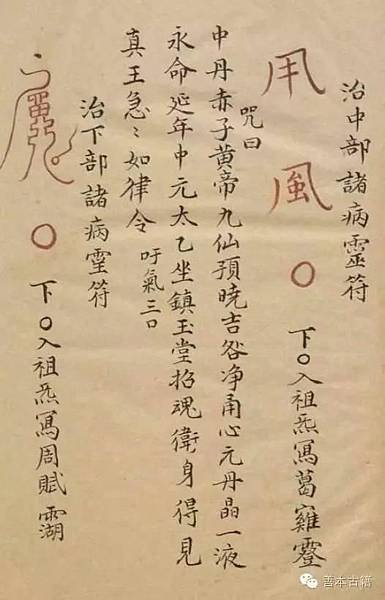 治中部諸病靈符
用風〇 下〇入祖炁寫葛雞䨩
咒曰
中丹赤子黃帝九仙預曉吉咎净甬心元丹晶一液
永命延年中元太乙坐鎮玉堂招魂衛身得見
真王急〻如律令 吁氣三口
治下部諸病霊符
〇 下〇入祖炁寫周賦𩄇
善本古籍